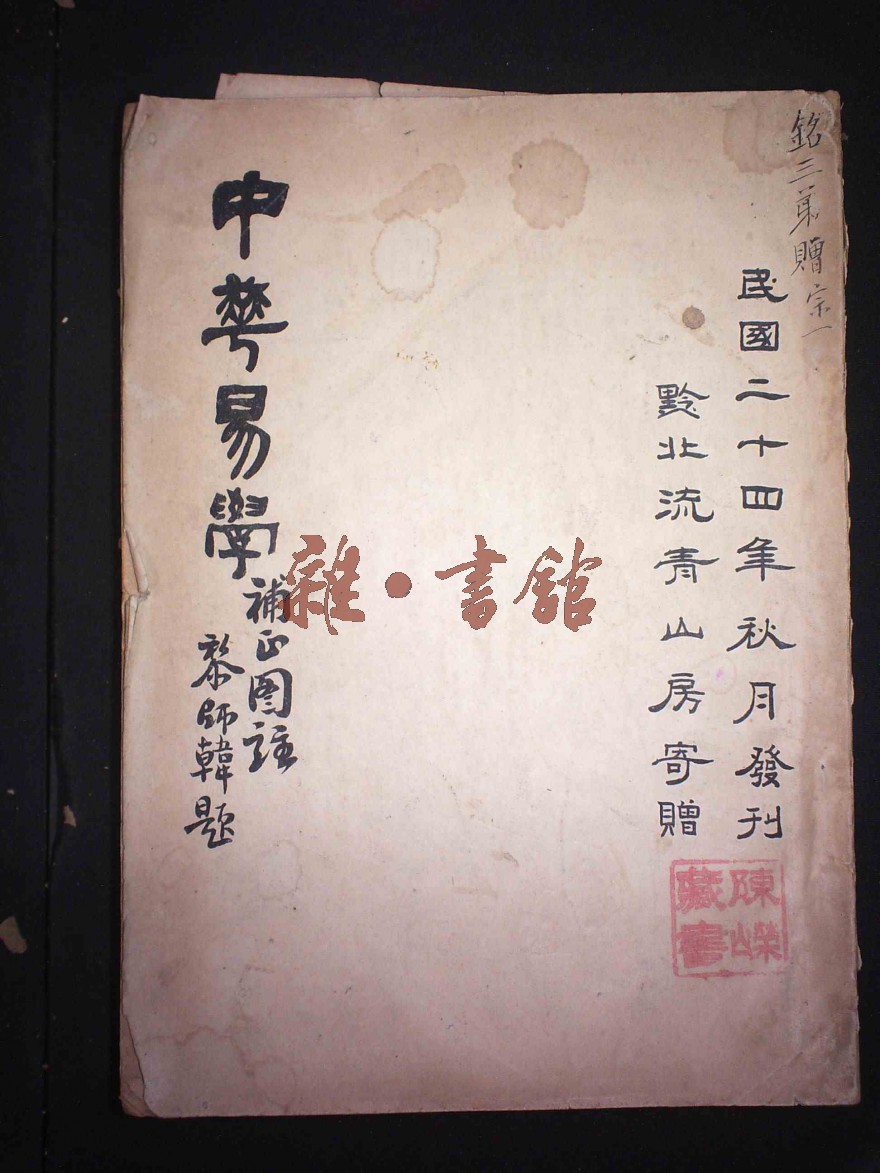 銘三弟贈宗一
民國二十四年秋月發刊
黔北流青山房寄贈
陳嶸
藏書
雜·書館
中華易學
補正图註
黎師韓題